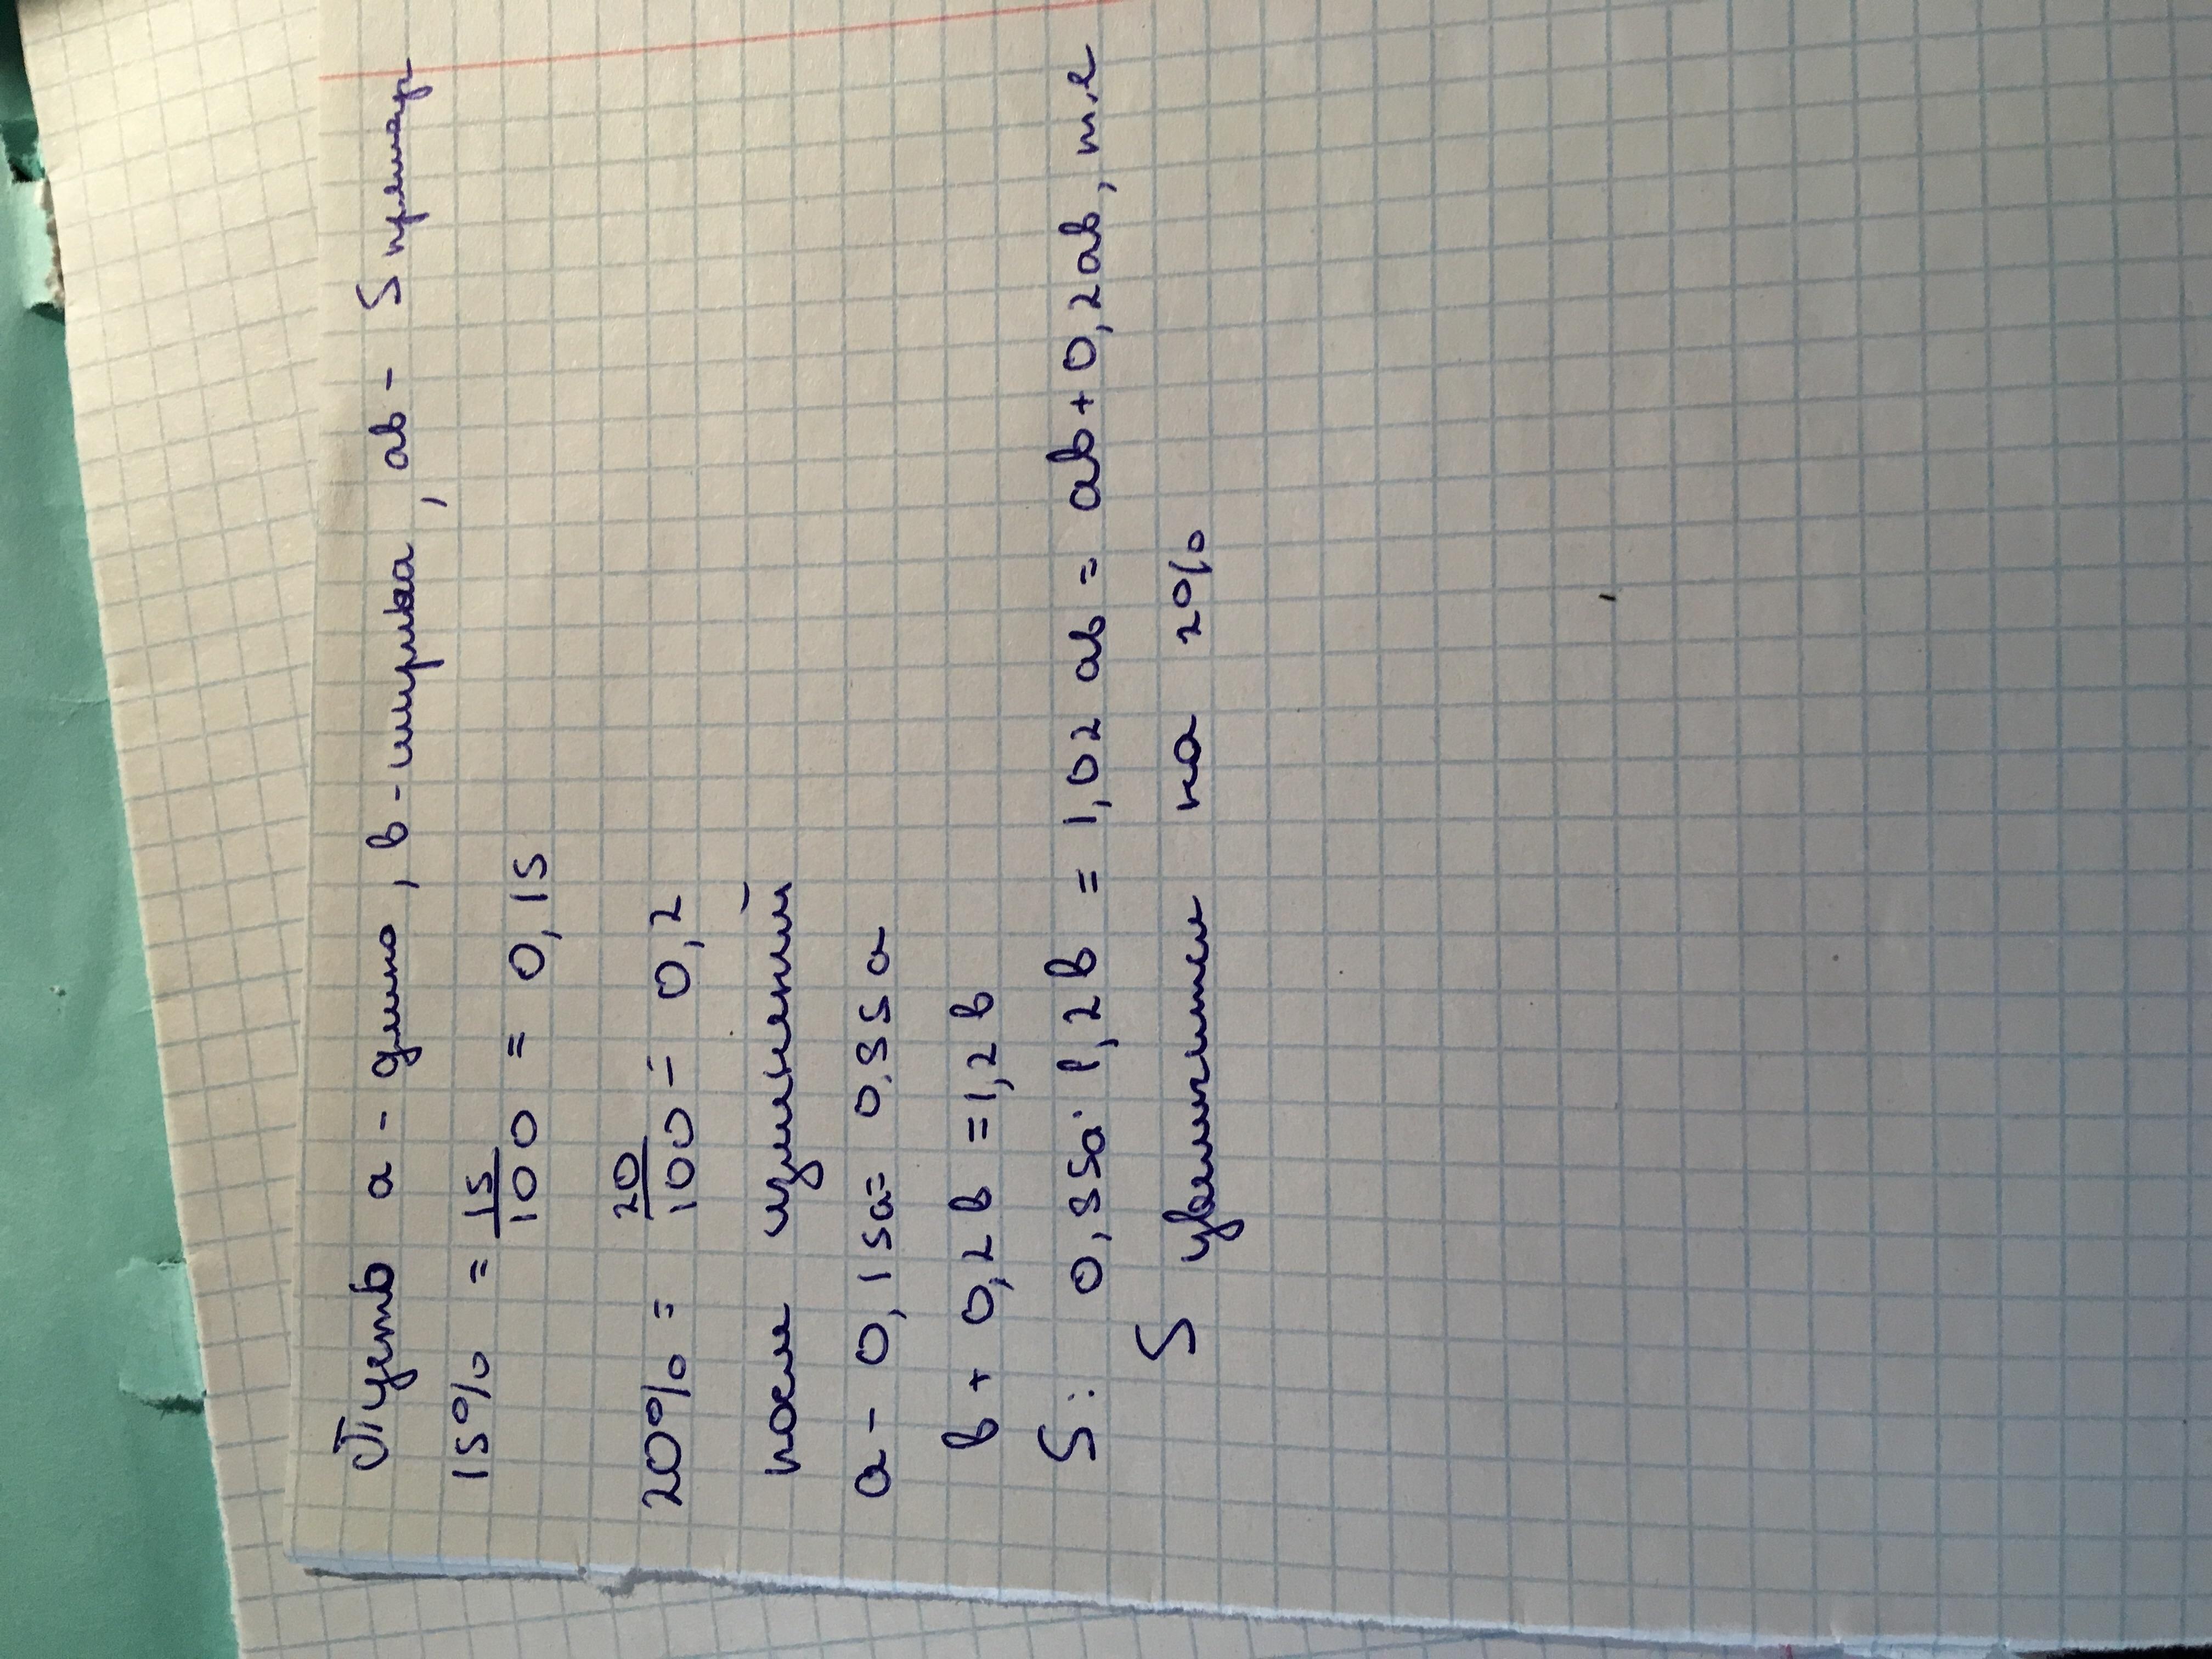 Пусть а - длина, в - ширина, ав - S прямоуг
15% = 15/100 = 0,15
20% = 20/100 = 0,2
после изменений
а - 0,15а = 0,85а
в + 0,2в = 1,2в
S: 0,85а · 1,2в = 1,02 ав = ав + 0,2ав, т.е
S увеличится на 2%